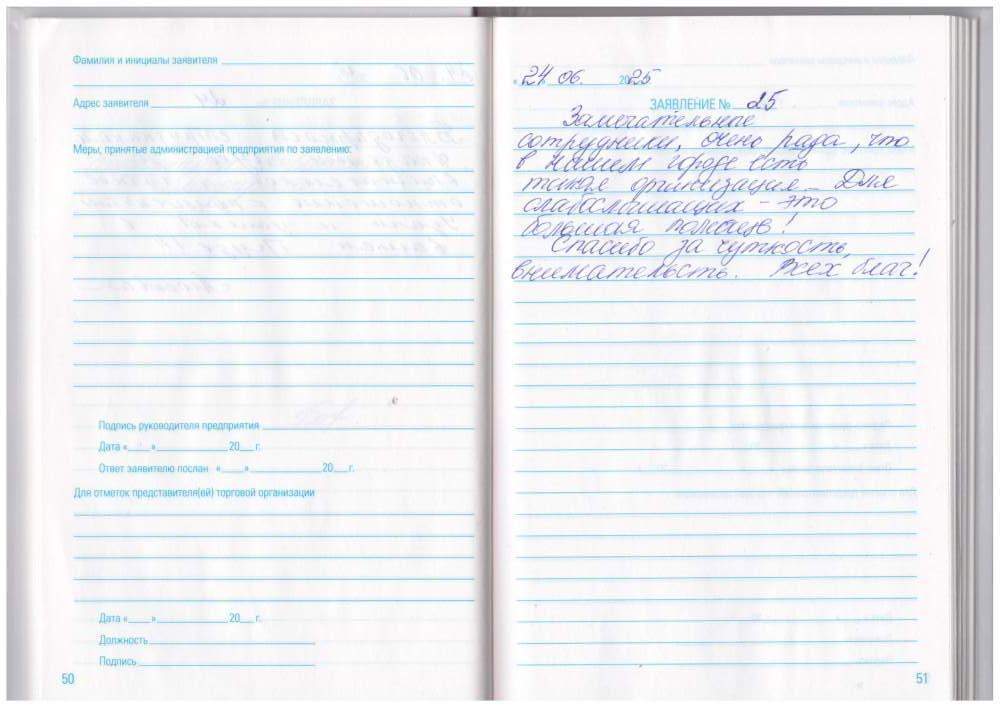 Фамилия и инициалы заявителя
Адрес заявителя
Меры, принятые администрацией предприятия по заявлению:
Подпись руководителя предприятия
Дата «___» ______ 20__ г.
Ответ заявителю послан «___» ______ 20__ г.
Для отметок представителя(ей) торговой организации
Дата «___» ______ 20__ г.
Должность
Подпись
50
«24 06. 2025
ЗАЯВЛЕНИЕ № 25
Замечательные
сотрудники, очень рада, что
в нашем городе есть
такая организация - Для
слабослышащих - это
большая помощь!
Спасибо за чуткость,
внимательность. Всех благ!
51